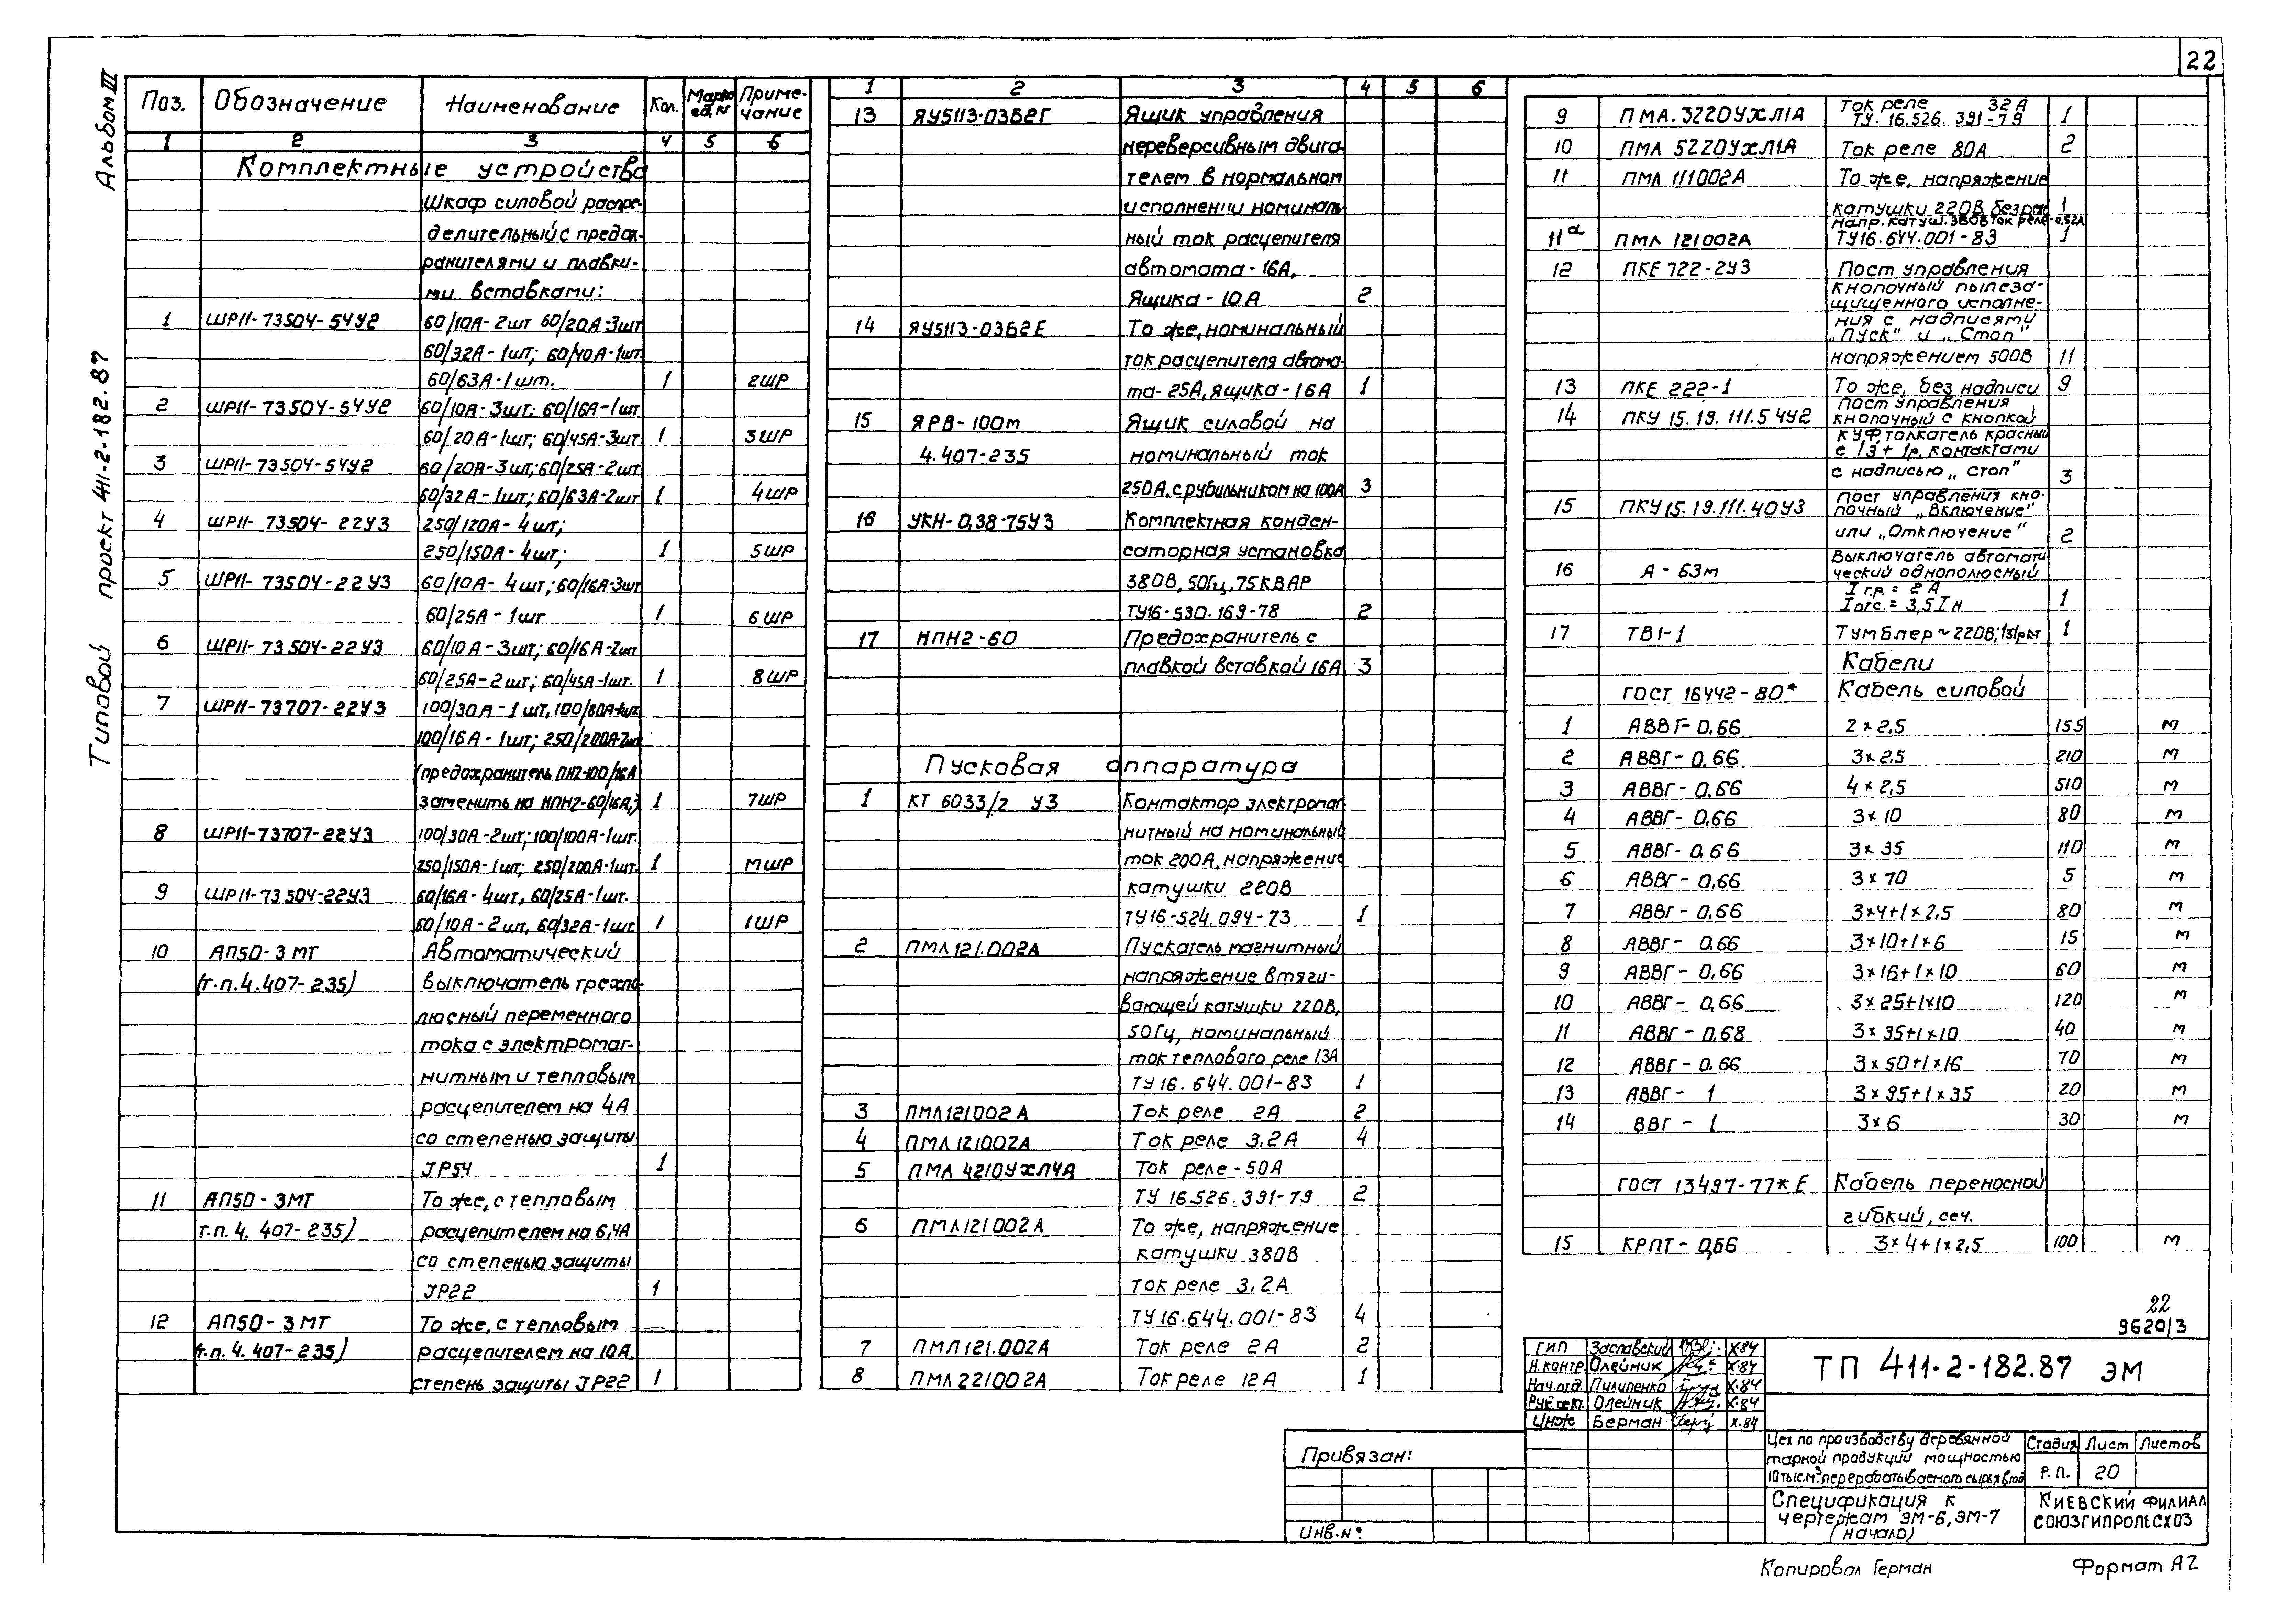 22
Альбом III
Типовой проект 411-2-182.87
Поз. Обозначение Наименование Кол. Марка ед, кг Приме-чание
1 2 3 4 5 6
Комплектные устройства
Шкаф силовой распре-
делительный с предох-
ранителями и плавки-
ми вставками:
1 ШР11-73504-54У2 60/10А-2шт 60/20А-3шт
60/32А-1шт; 60/40А-1шт.
60/63А-1шт. 1 2ШР
2 ШР11-73504-54У2 60/10А-3шт; 60/16А-1шт
60/20А-1шт; 60/45А-3шт 1 3ШР
3 ШР11-73504-54У2 60/20А-3шт; 60/25А-2шт
60/32А-1шт; 60/63А-2шт 1 4ШР
4 ШР11-73504-22У3 250/120А-4шт;
250/150А-4шт; 1 5ШР
5 ШР11-73504-22У3 60/10А-4шт; 60/16А-3шт
60/25А-1шт 1 6ШР
6 ШР11-73504-22У3 60/10А-3шт; 60/16А-2шт
60/25А-2шт; 60/45А-1шт. 1 8ШР
7 ШР11-73707-22У3 100/30А-1шт, 100/80А
100/16А-1шт; 250/200А-2шт
(предохранитель ПН2-100/16А
заменить на НПН2-60/16А,) 1 7ШР
8 ШР11-73707-22У3 100/30А-2шт; 100/100А-1шт.
250/150А-1шт; 250/200А-1шт. 1 МШР
9 ШР11-73504-22У3 60/16А-4шт, 60/25А-1шт.
60/10А-2шт, 60/32А-1шт. 1 1ШР
10 АП50-3МТ Автоматический
(т.п.4.407-235) выключатель трехпо-
люсный переменного
тока с электромаг-
нитным и тепловым
расцепителем на 4А
со степенью защиты
JP54 1
11 АП50-3МТ То же, с тепловым
т.п.4.407-235) расцепителем на 6,4А
со степенью защиты
JP22 1
12 АП50-3МТ То же, с тепловым
(т.п.4.407-235) расцепителем на 10А,
степень защиты JP22 1
1 2 3 4 5 6
13 ЯУ5113-03Б2Г Ящик управления
нереверсивным двига-
телем в нормальном
исполнении номиналь-
ный ток расцепителя
автомата-16А,
Ящика-10А 2
14 ЯУ5113-03Б2Е То же, номинальный
ток расцепителя автома-
та-25А, ящика-16А 1
15 ЯРВ-100м Ящик силовой на
4.407-235 номинальный ток
250А, с рубильником на 100А 3
16 УКН-0,38-75У3 Комплектная конден-
саторная установка
380В, 50Гц, 75КВАР
ТУ16-530.169-78 2
17 НПН2-60 Предохранитель с
плавкой вставкой 16А 3
Пусковая аппаратура
1 КТ 6033/2 У3 Контактор электромаг
нитный на номинальный
ток 200А, напряжение
катушки 220В
ТУ16-524.094-73 1
2 ПМЛ121.002А Пускатель магнитный
напряжение втяги-
вающей катушки 220В,
50Гц, номинальный
ток теплового реле 1.3А
ТУ16.644.001-83 1
3 ПМЛ121002А Ток реле 2А 2
4 ПМЛ121002А Ток реле 3,2А 4
5 ПМЛ 4210УХЛ4А Ток реле-50А
ТУ 16.526.391-79 2
6 ПМЛ121002А То же, напряжение
катушки 380В
ток реле 3,2А
ТУ16.644.001-83 4
7 ПМЛ121.002А Ток реле 2А 2
8 ПМЛ221002А Ток реле 12А 1
9 ПМА.3220УХЛ1А Ток реле 32А
ТУ.16.526.391-79 1
10 ПМЛ 5220УХЛ1А Ток реле 80А 2
11 ПМЛ 111002А То же, напряжение
катушки 220В безрас 1
напр. катуш. 380В ток реле-0,52А
11а ПМЛ 121002А ТУ16.644.001-83 1
12 ПКЕ 722-2У3 Пост управления
кнопочный пылеза-
щищенного исполне-
ния с надписями
„Пуск" и „Стоп"
напряжением 500В 11
13 ПКЕ 222-1 То же, без надписи 9
Пост управления
14 ПКУ 15.19.111.54У2 кнопочный с кнопкой
КУФ, толкатель красный
с 13+1р. контактами
с надписью „стоп" 3
15 ПКУ15.19.111.40У3 Пост управления кно-
почный „Включение"
или „Отключение" 2
16 А-63м Выключатель автомати
ческий однополюсный
I т.р.= 2А
Iотс.= 3,5Iн 1
17 ТВ1-1 Тумблер ~220В; 1 1
Кабели
ГОСТ 16442-80* Кабель силовой
1 АВВГ-0,66 2×2,5 155 м
2 АВВГ-0,66 3×2,5 210 м
3 АВВГ-0,66 4×2,5 510 м
4 АВВГ-0,66 3×10 80 м
5 АВВГ-0,66 3×35 110 м
6 АВВГ-0,66 3×70 5 м
7 АВВГ-0,66 3×4+1×2,5 80 м
8 АВВГ-0,66 3×10+1×6 15 м
9 АВВГ-0,66 3×16+1×10 60 м
10 АВВГ-0,66 3×25+1×10 120 м
11 АВВГ-0,68 3×35+1×10 40 м
12 АВВГ-0,66 3×50+1×16 70 м
13 АВВГ-1 3×95+1×35 20 м
14 ВВГ-1 3×6 30 м
ГОСТ 13497-77*Е Кабель переносной
гибкий, сеч.
15 КРПТ-0,66 3×4+1×2,5 100 м
22
9620/3
ГИП Заславский Х-84
Н.контр. Олейник Х-84
Нач.отд. Пилипенко Х-84
Рук.сект. Олейник Х-84
Инж Берман Х-84
ТП 411-2-182.87 ЭМ
Цех по производству деревянной
тарной продукции мощностью
10тыс.м³ перерабатываемого сырья в год
Стадия Лист Листов
Р.П. 20
Спецификация к
чертежам ЭМ-6, ЭМ-7
(начало)
Киевский филиал
Союзгипролесхоз
Привязан:
Инв.№:
Копировал Герман
Формат А2